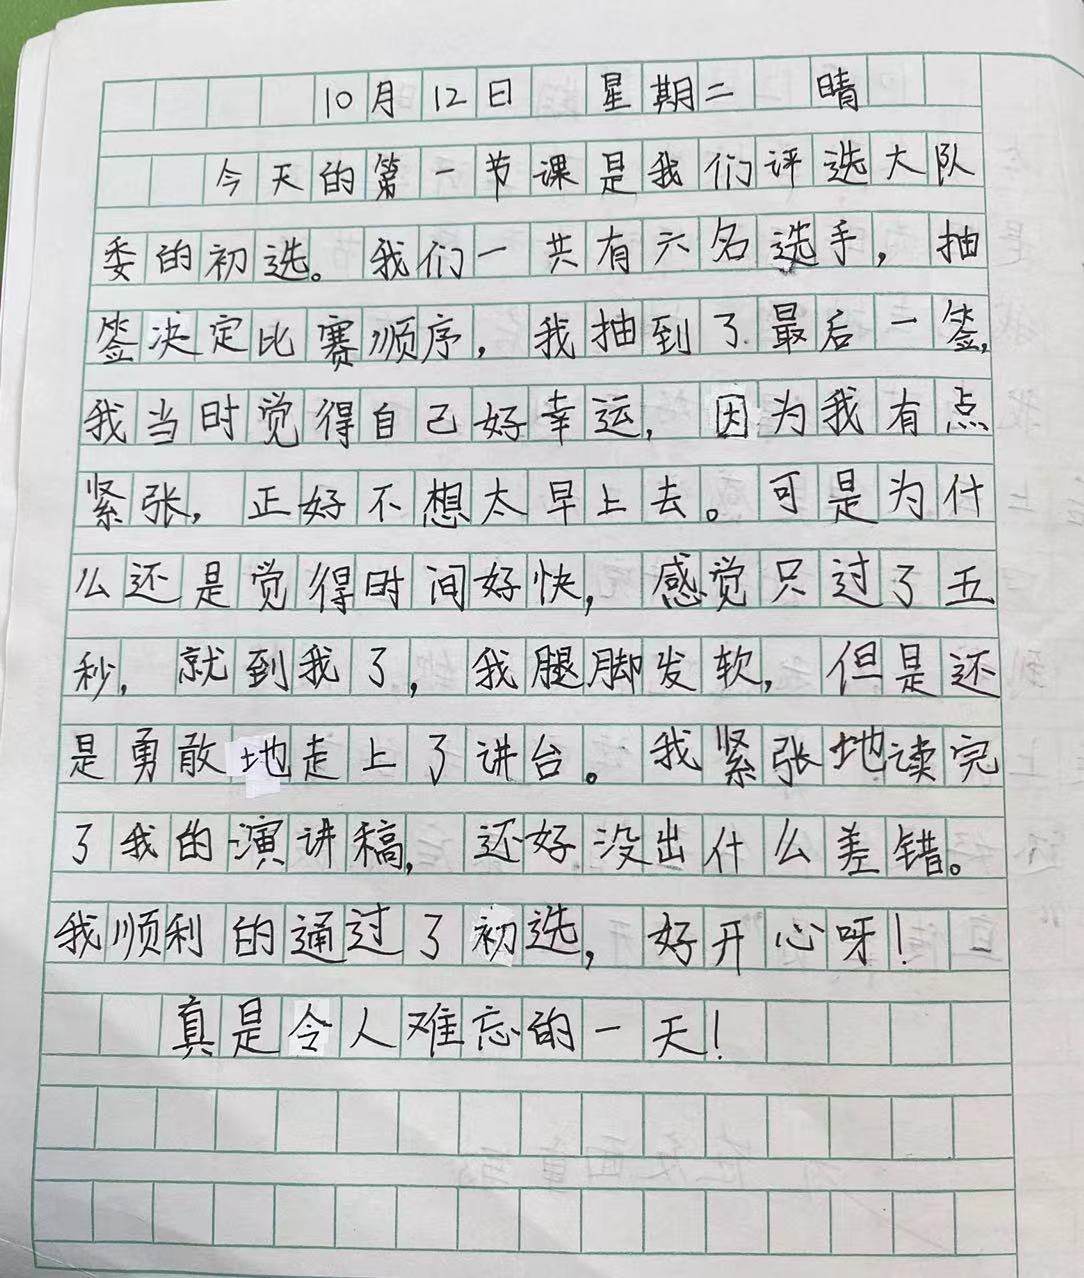 10月12日 星期二 晴
今天的第一节课是我们评选大队
委的初选。我们一共有六名选手，抽
签决定比赛顺序，我抽到了最后一签，
我当时觉得自己好幸运，因为我有点
紧张，正好不想太早上去。可是为什
么还是觉得时间好快，感觉只过了五
秒，就到我了，我腿脚发软，但是还
是勇敢地走上了讲台。我紧张地读完
了我的演讲稿，还好没出什么差错。
我顺利的通过了初选，好开心呀！
真是令人难忘的一天！